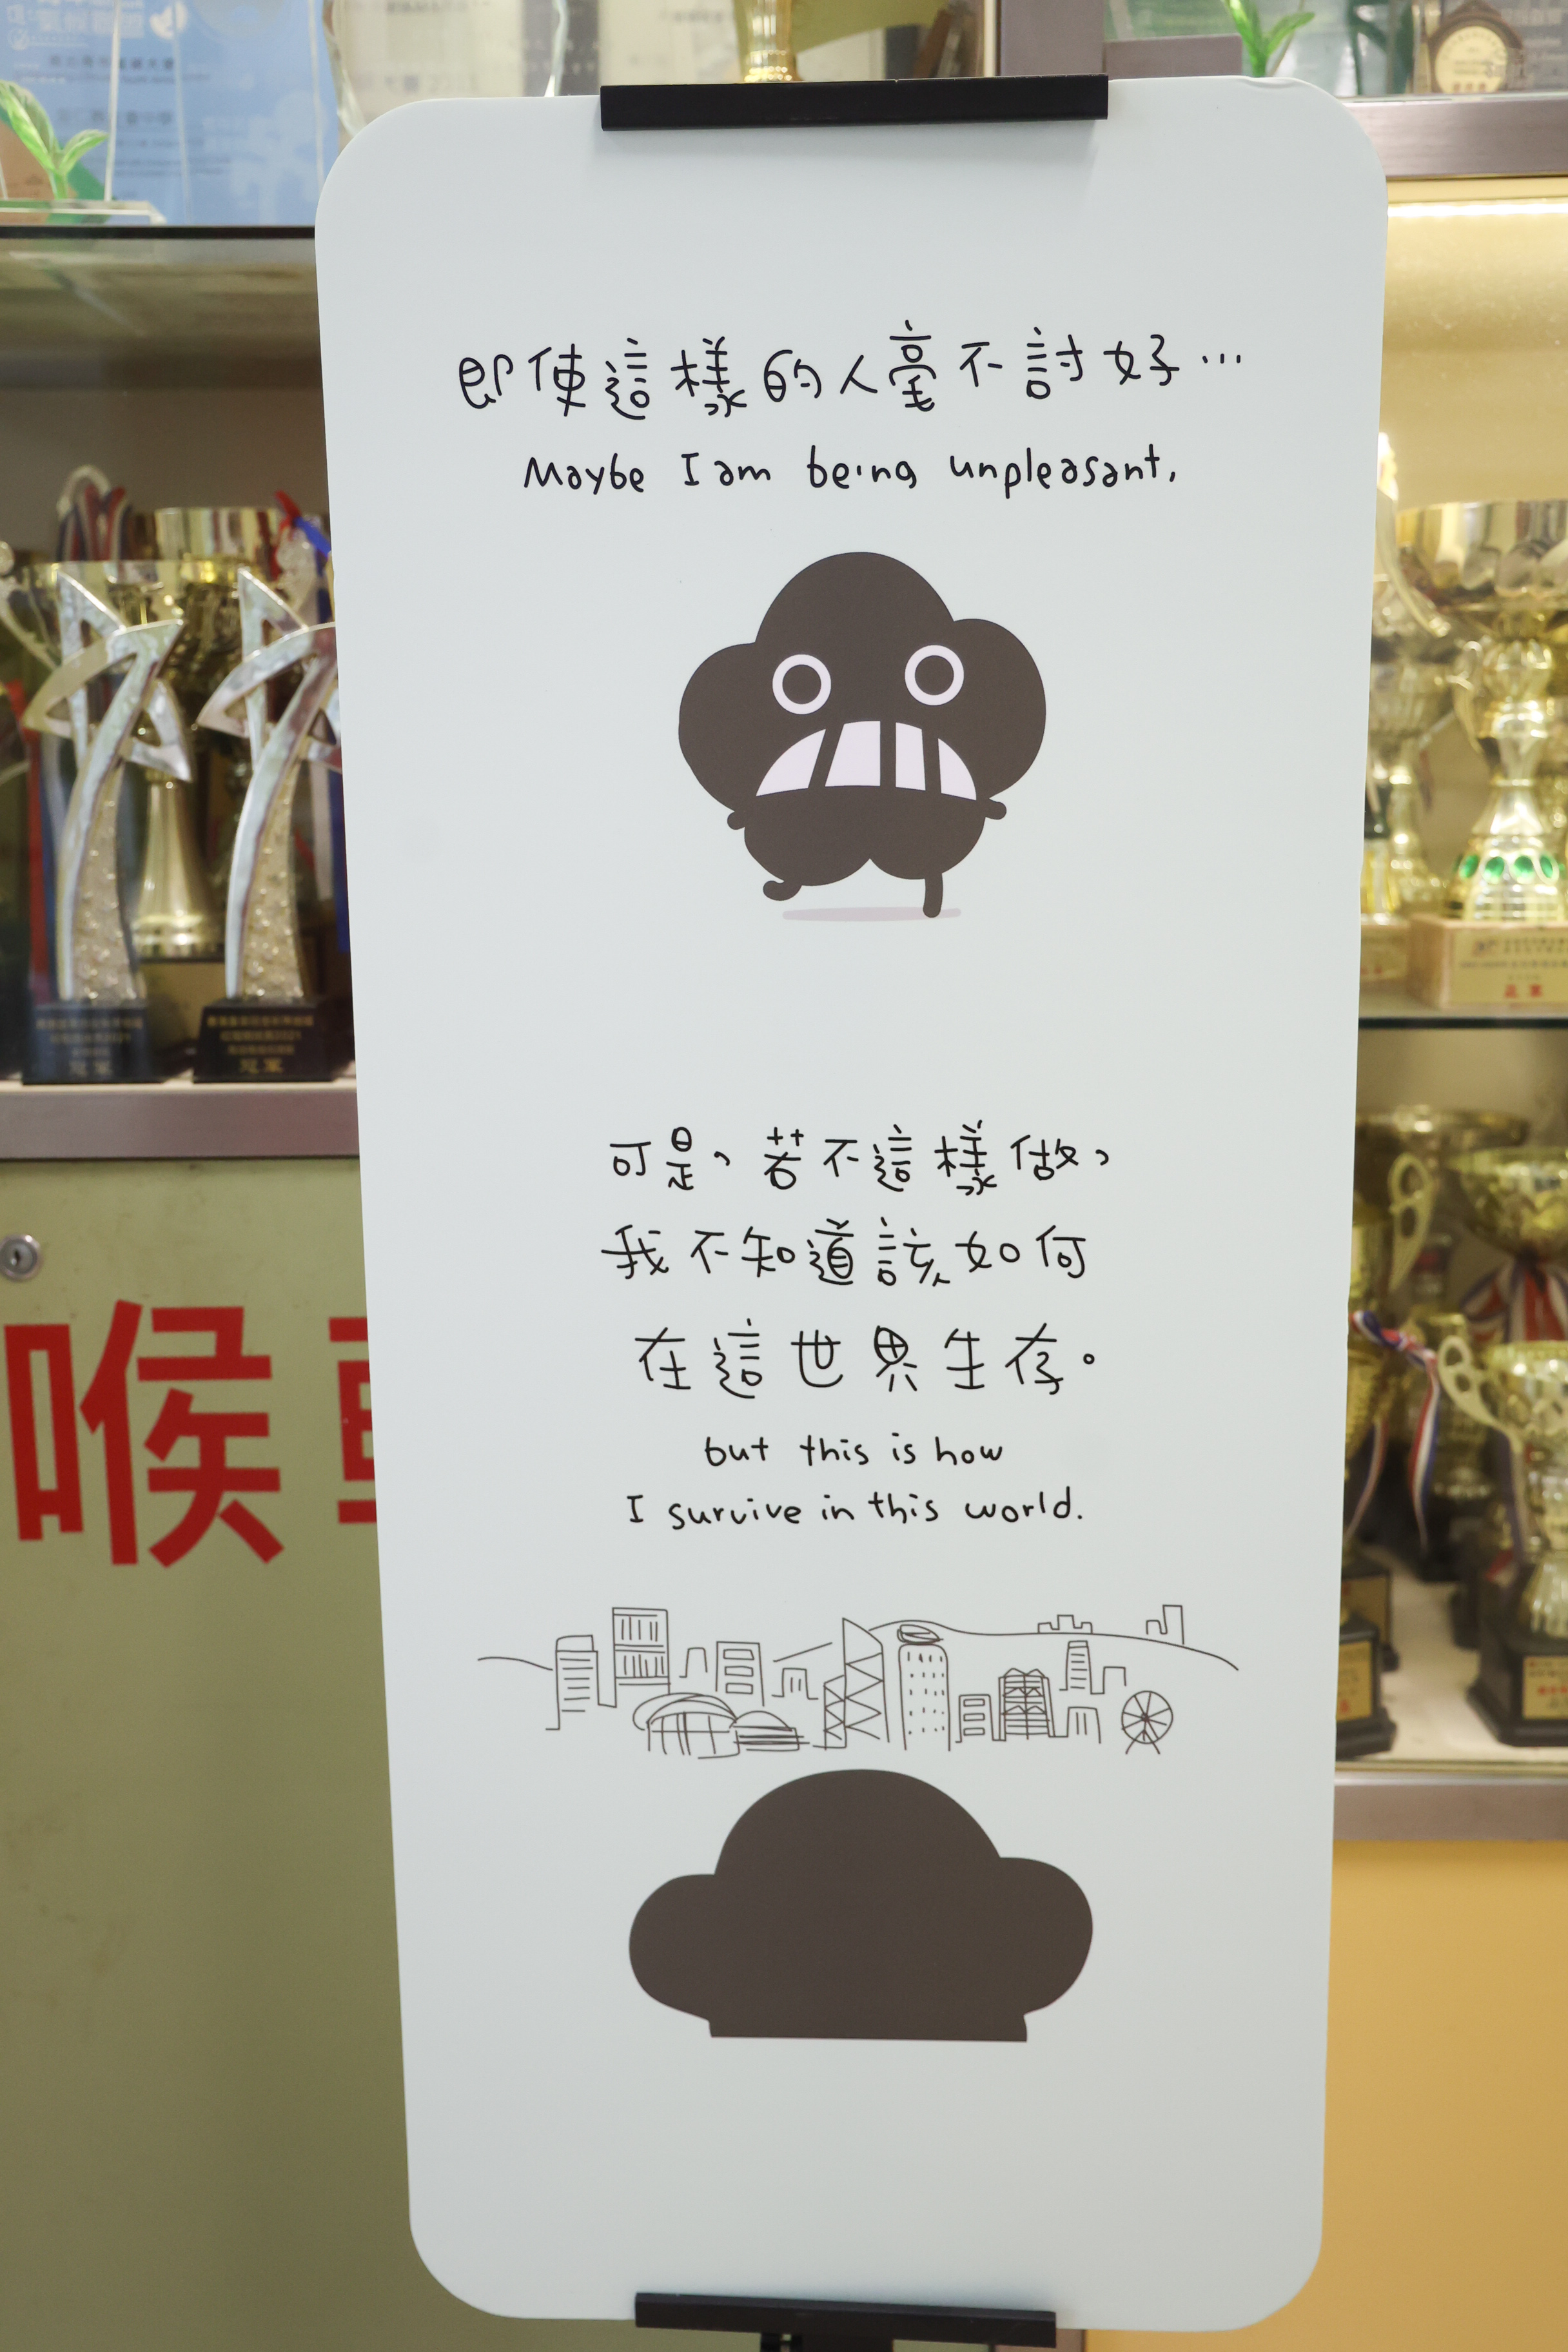 即使這樣的人毫不討好…
Maybe I am being unpleasant,
可是，若不這樣做，
我不知道該如何
在這世界生存。
but this is how
I survive in this world.
喉
冠軍
冠軍